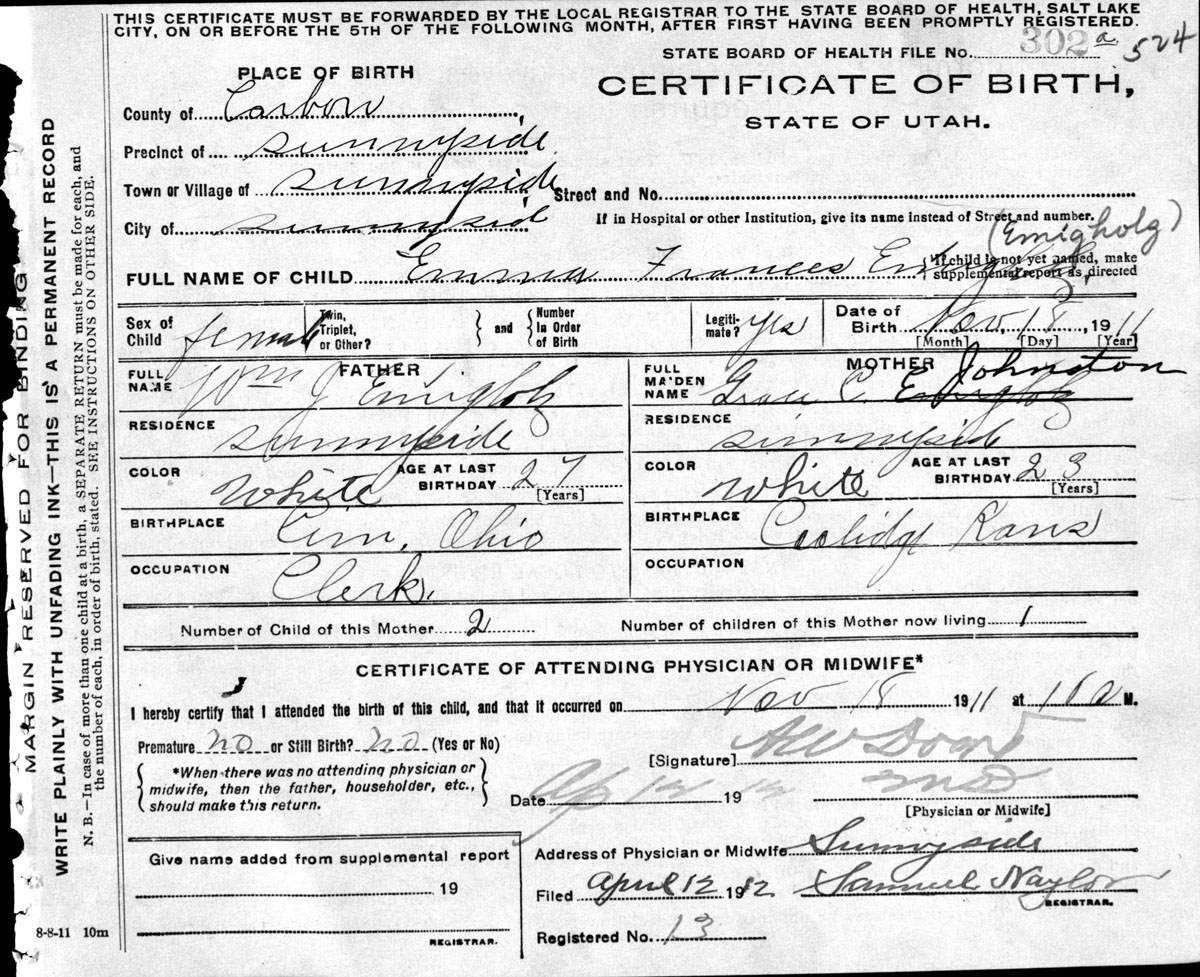 THIS CERTIFICATE MUST BE FORWARDED BY THE LOCAL REGISTRAR TO THE STATE BOARD OF HEALTH, SALT LAKE
CITY, ON OR BEFORE THE 5TH OF THE FOLLOWING MONTH, AFTER FIRST HAVING BEEN PROMPTLY REGISTERED.
STATE BOARD OF HEALTH FILE No. 302a 524
PLACE OF BIRTH
CERTIFICATE OF BIRTH,
STATE OF UTAH.
County of Carbon
Precinct of Sunnyside
Town or Village of Sunnyside Street and No.
City of Sunnysid
If in Hospital or other Institution, give its name instead of Street and number.
(Emigholz)
FULL NAME OF CHILD Emma Frances
*If child is not yet named, make
supplemental report as directed
Sex of Child female
Twin, Triplet, or Other?
and
Number In Order of Birth
Legiti-mate? yes
Date of Birth Nov, 18, 1911
[Month] [Day] [Year]
FATHER
FULL NAME Wm J Emigholz
RESIDENCE Sunnyside
COLOR White AGE AT LAST BIRTHDAY 27
[Years]
BIRTHPLACE Cin, Ohio
OCCUPATION Clerk.
MOTHER
FULL MAIDEN NAME Grace C. Johnston
RESIDENCE Sunnyside
COLOR White AGE AT LAST BIRTHDAY 23
[Years]
BIRTHPLACE Coolidge Kans
OCCUPATION
Number of Child of this Mother 2 Number of children of this Mother now living 1
CERTIFICATE OF ATTENDING PHYSICIAN OR MIDWIFE*
I hereby certify that I attended the birth of this child, and that it occurred on Nov 18 1911 at a M.
Premature no or Still Birth? no (Yes or No)
[Signature]
*When there was no attending physician or
midwife, then the father, householder, etc.,
should make this return.
Date Ap 12 1912 MD
[Physician or Midwife]
Give name added from supplemental report
19
REGISTRAR.
Address of Physician or Midwife Sunnyside
Filed April 12 1912 Samuel Naylor
REGISTRAR.
Registered No. 13
8-8-11 10m
MARGIN RESERVED FOR BINDING
WRITE PLAINLY WITH UNFADING INK—THIS IS A PERMANENT RECORD
N. B.—In case of more than one child at a birth, a SEPARATE RETURN must be made for each, and
the number of each, in order of birth, stated. SEE INSTRUCTIONS ON OTHER SIDE.